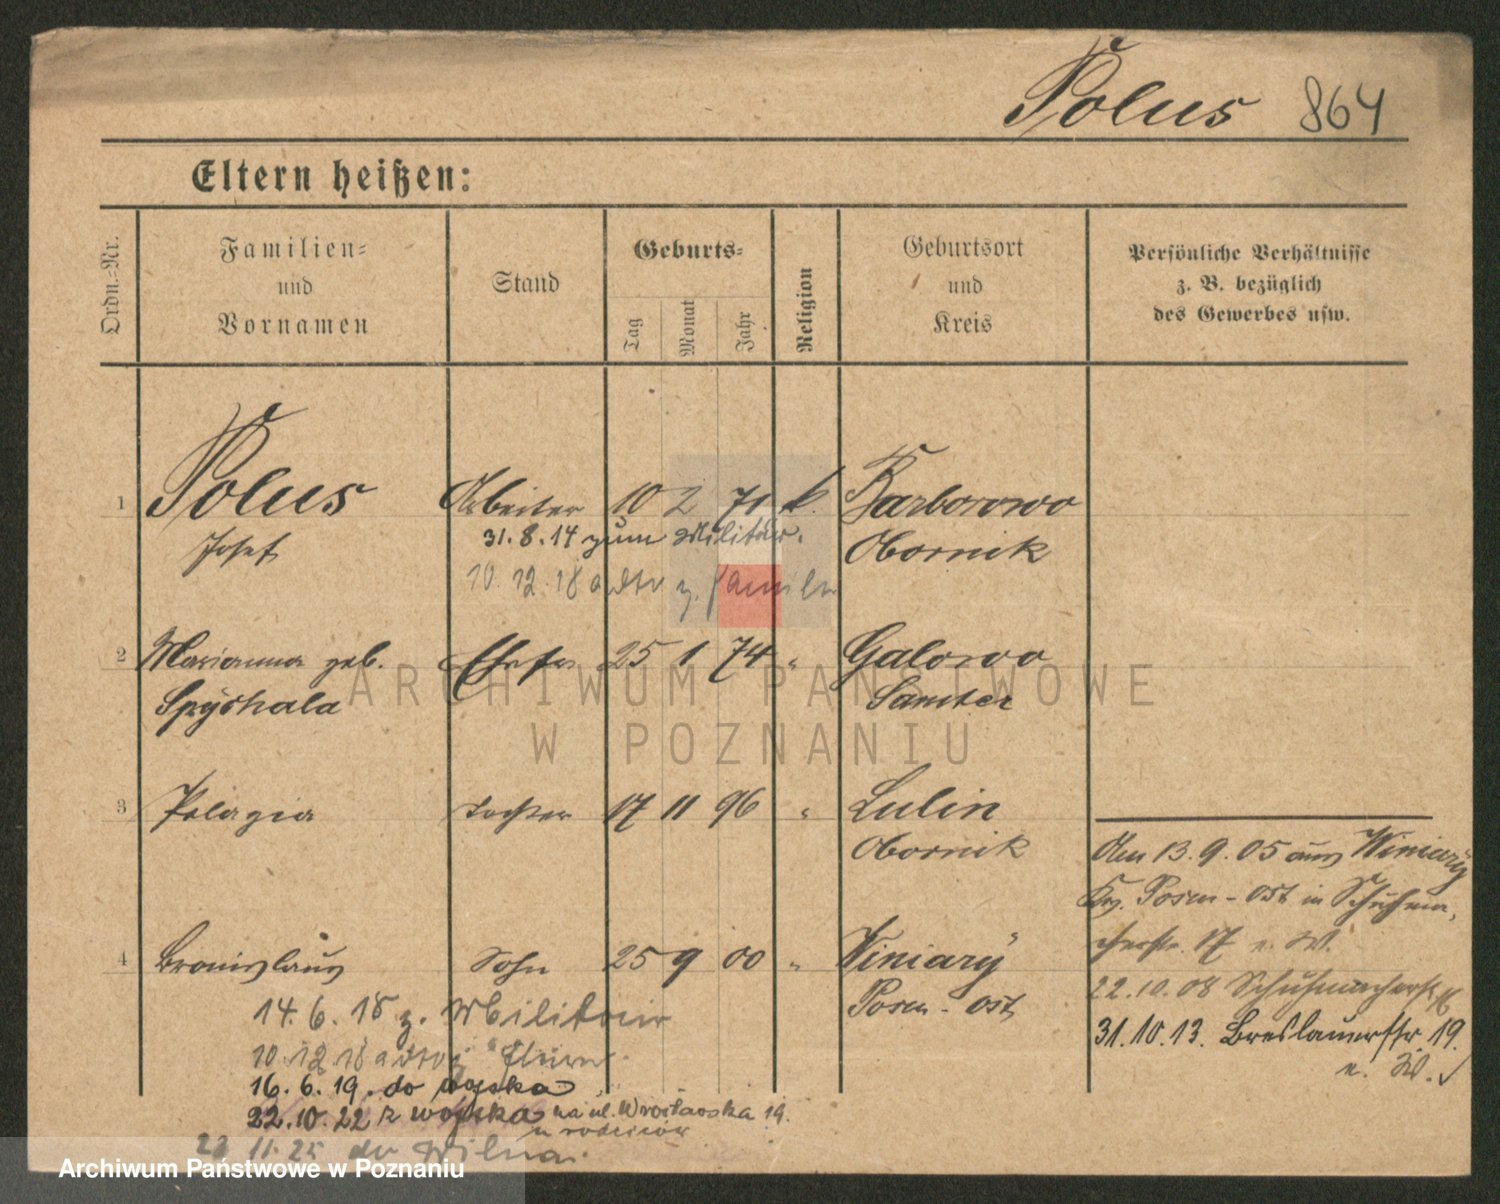 Polus 864
Eltern heißen:
Ordn.-Nr.
Familien-
und
Vornamen
Stand
Geburts-
Tag
Monat
Jahr
Religion
Geburtsort
und
Kreis
Persönliche Verhältnisse
z. B. bezüglich
des Gewerbes usw.
1 Polus Arbeiter 10 2 71 k. Barborowo
Josef 31.8.14 zum Militär. Obornik
10.12.18 z. Familie
2 Marianna geb. Ehefr 25 1 74 " Galowo
Spyshala Samter
3 Pelagia Tochter 17 11 96 " Lulin
Obornik
Den 13.9.05 aus Winiary
Krs. Posen-Ost in Schuhma-
cherstr. 17 n. W.
4 Bronislaus Sohn 25 9 00 " Winiary
Posen-Ost
22.10.08 Schuhmacherstr.
31.10.13. Breslauerstr. 19.
n. W.
14.6.18 z. Militair
10.12.18
16.6.19. do wojska
22.10.22 z wojska na ul. Wrocławska 19.
u rodziców
11.25 do Wilna.
ARCHIWUM PAŃSTWOWE
W POZNANIU
Archiwum Państwowe w Poznaniu